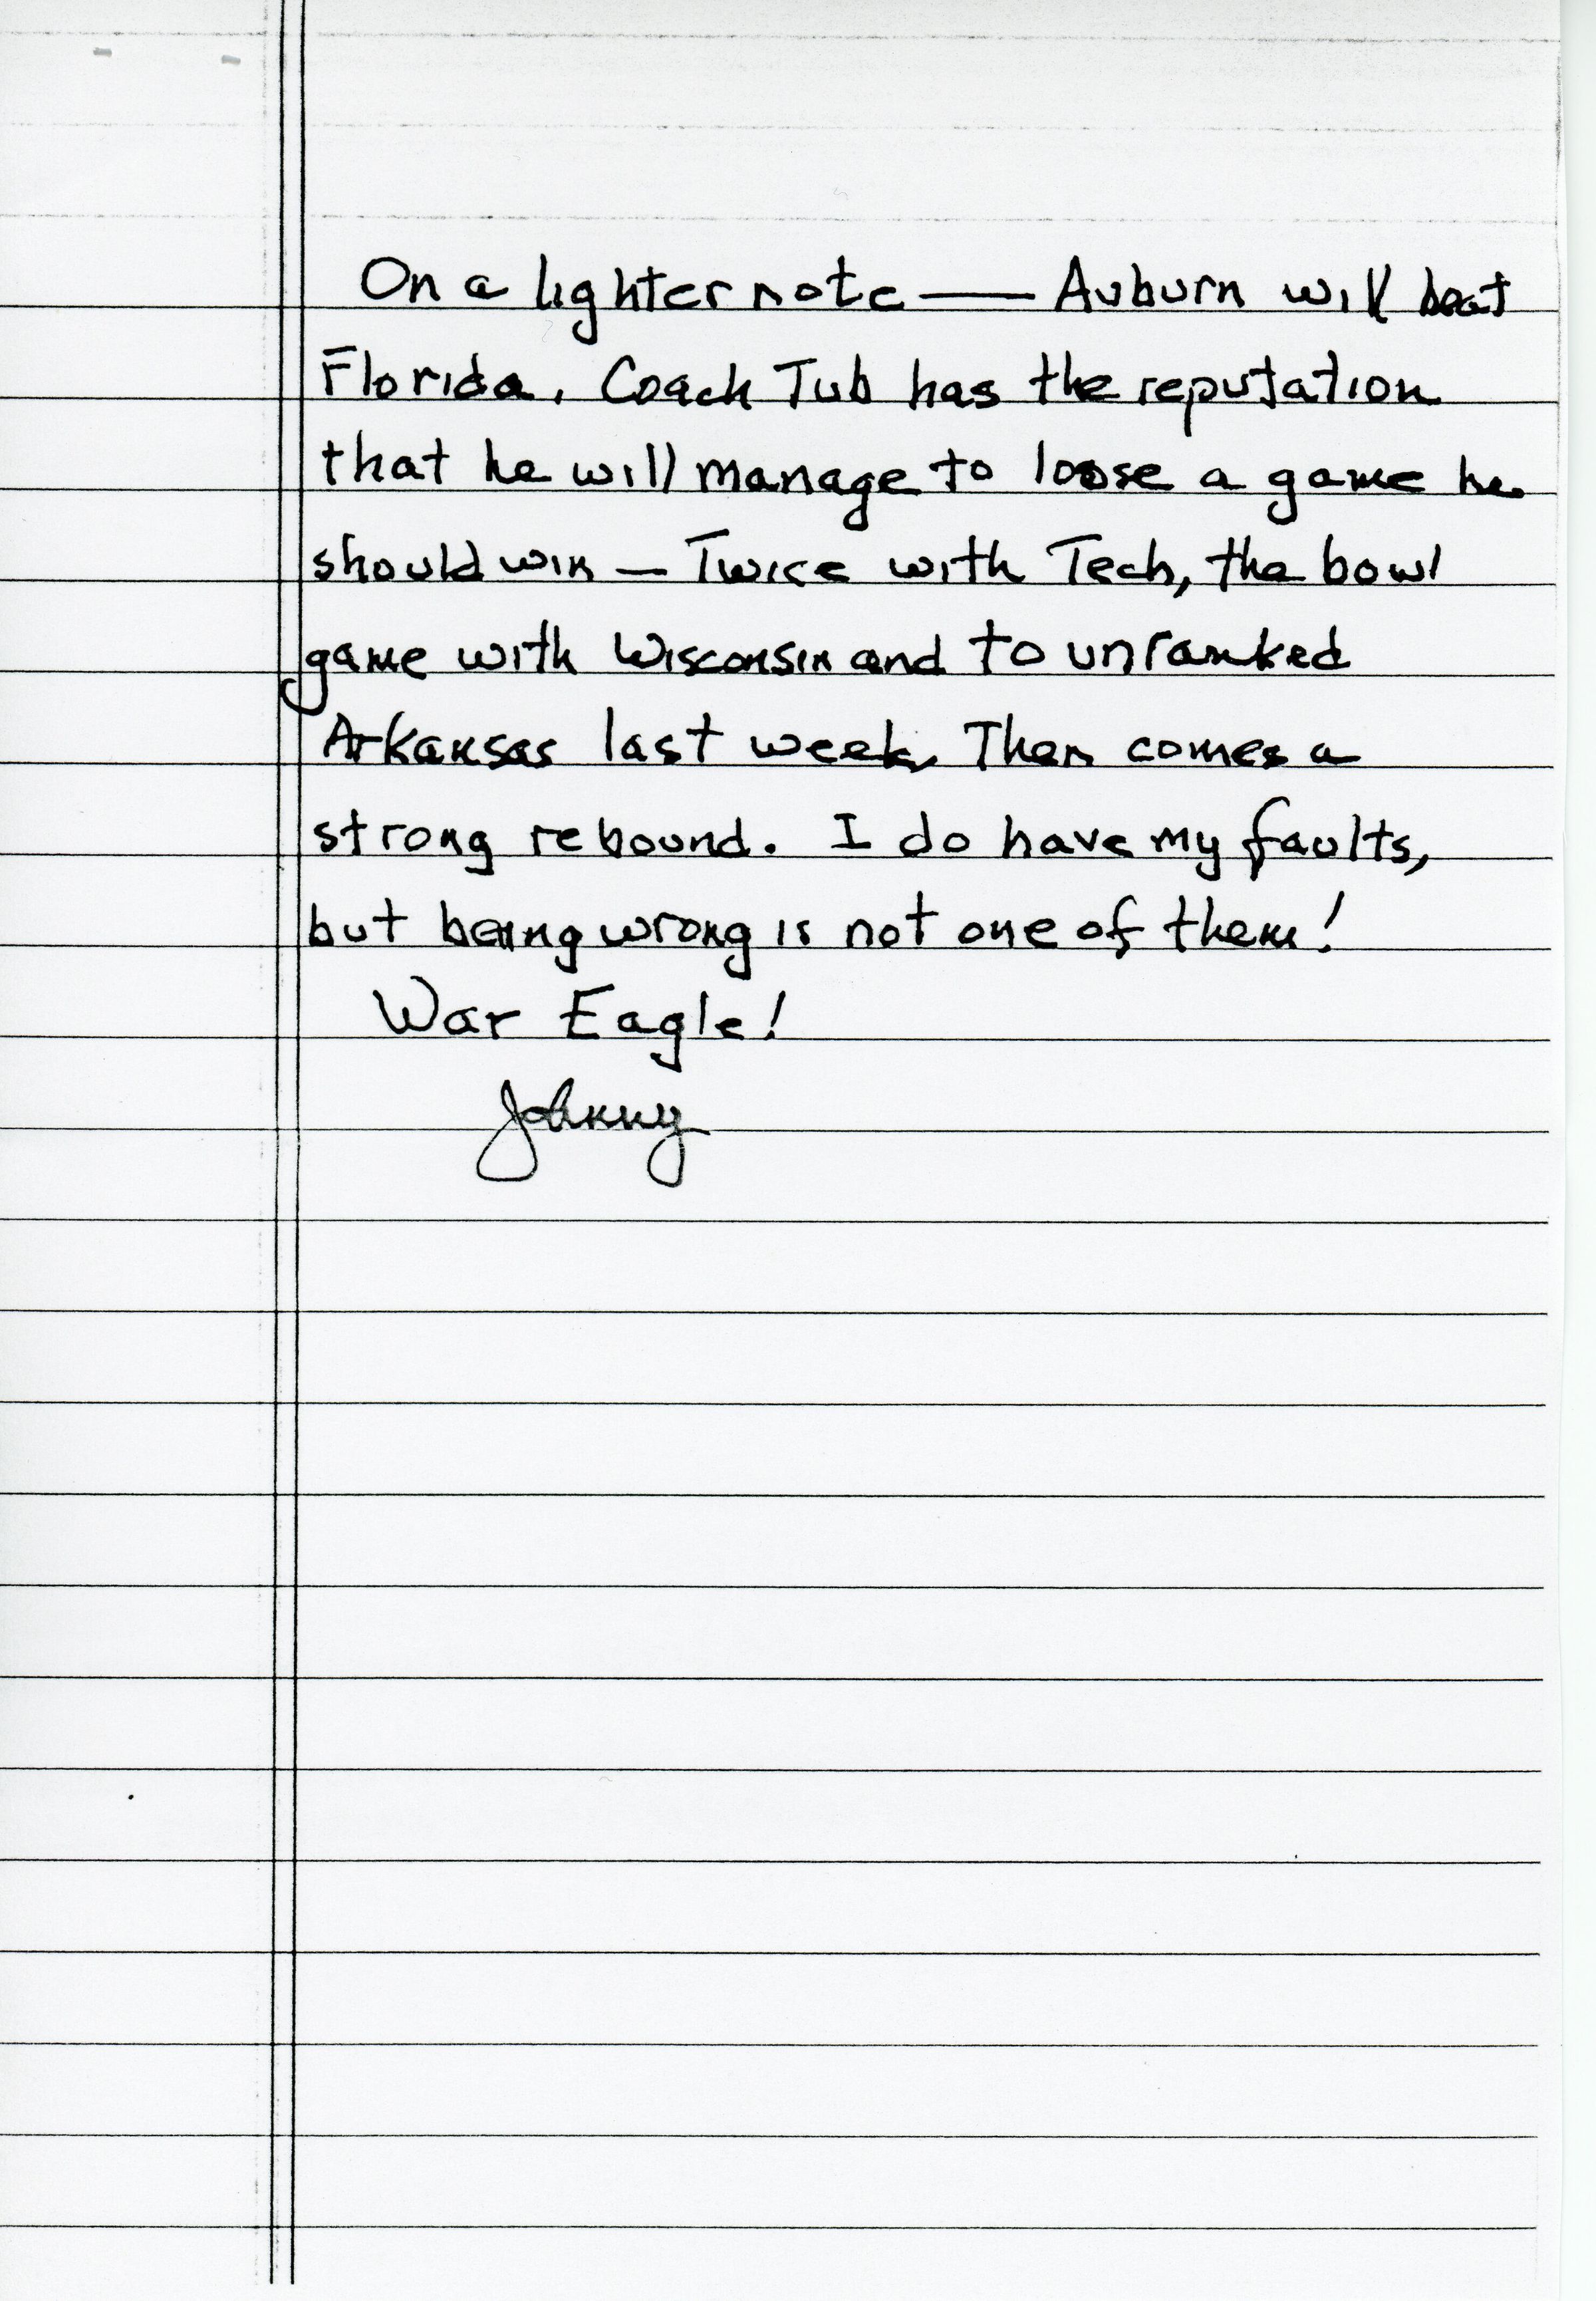 On a lighter note — Auburn will beat
Florida. Coach Tub has the reputation
that he will manage to loose a game he
should win — Twice with Tech, the bowl
game with Wisconsin and to unranked
Arkansas last week. Then comes a
strong rebound. I do have my faults,
but being wrong is not one of them!
War Eagle!
Johnny